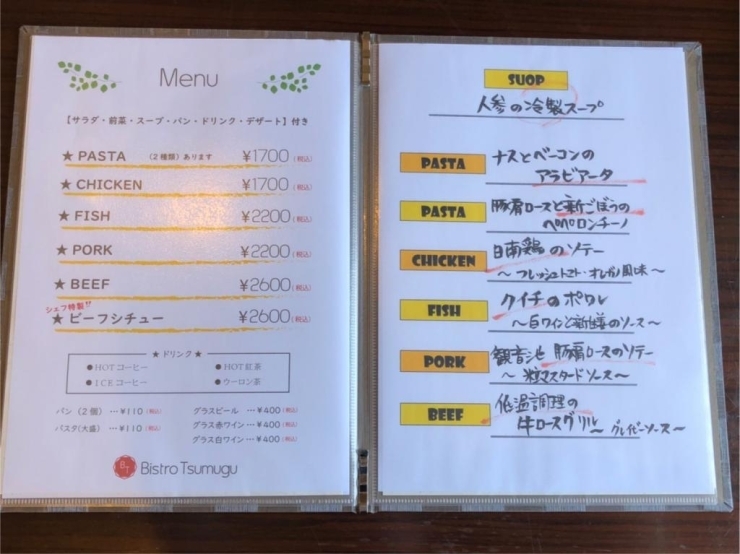 Menu
【サラダ・前菜・スープ・パン・ドリンク・デザート】付き
★ PASTA （2種類）あります ¥1700（税込）
★ CHICKEN ¥1700（税込）
★ FISH ¥2200（税込）
★ PORK ¥2200（税込）
★ BEEF ¥2600（税込）
シェフ特製!!
★ ビーフシチュー ¥2600（税込）
★ ドリンク ★
●HOTコーヒー ●HOT紅茶
●ICEコーヒー ●ウーロン茶
パン（2個）…¥110（税込） グラスビール…¥400（税込）
パスタ(大盛)…¥110（税込） グラス赤ワイン…¥400（税込）
グラス白ワイン…¥400（税込）
BT Bistro Tsumugu
SUOP
人参の冷製スープ
PASTA ナスとベーコンの
アラビアータ
PASTA 豚肩ロースと新ごぼうの
ペペロンチーノ
CHICKEN 日南鶏のソテー
～フレッシュトマト・オレガノ風味～
FISH クイチのポワレ
～白ワインと新のソース～
PORK 観音池豚肩ロースのソテー
～粒マスタードソース～
BEEF 低温調理の
牛ロースグリル～グレイビーソース～